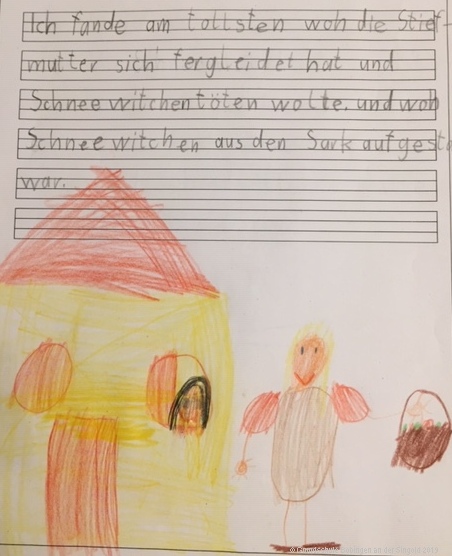 Ich fande am tollsten woh die Stief-
mutter sich fergleidet hat und
Schneewitchen töten wolte. und woh
Schneewitchen aus den Sark aufgest
war.